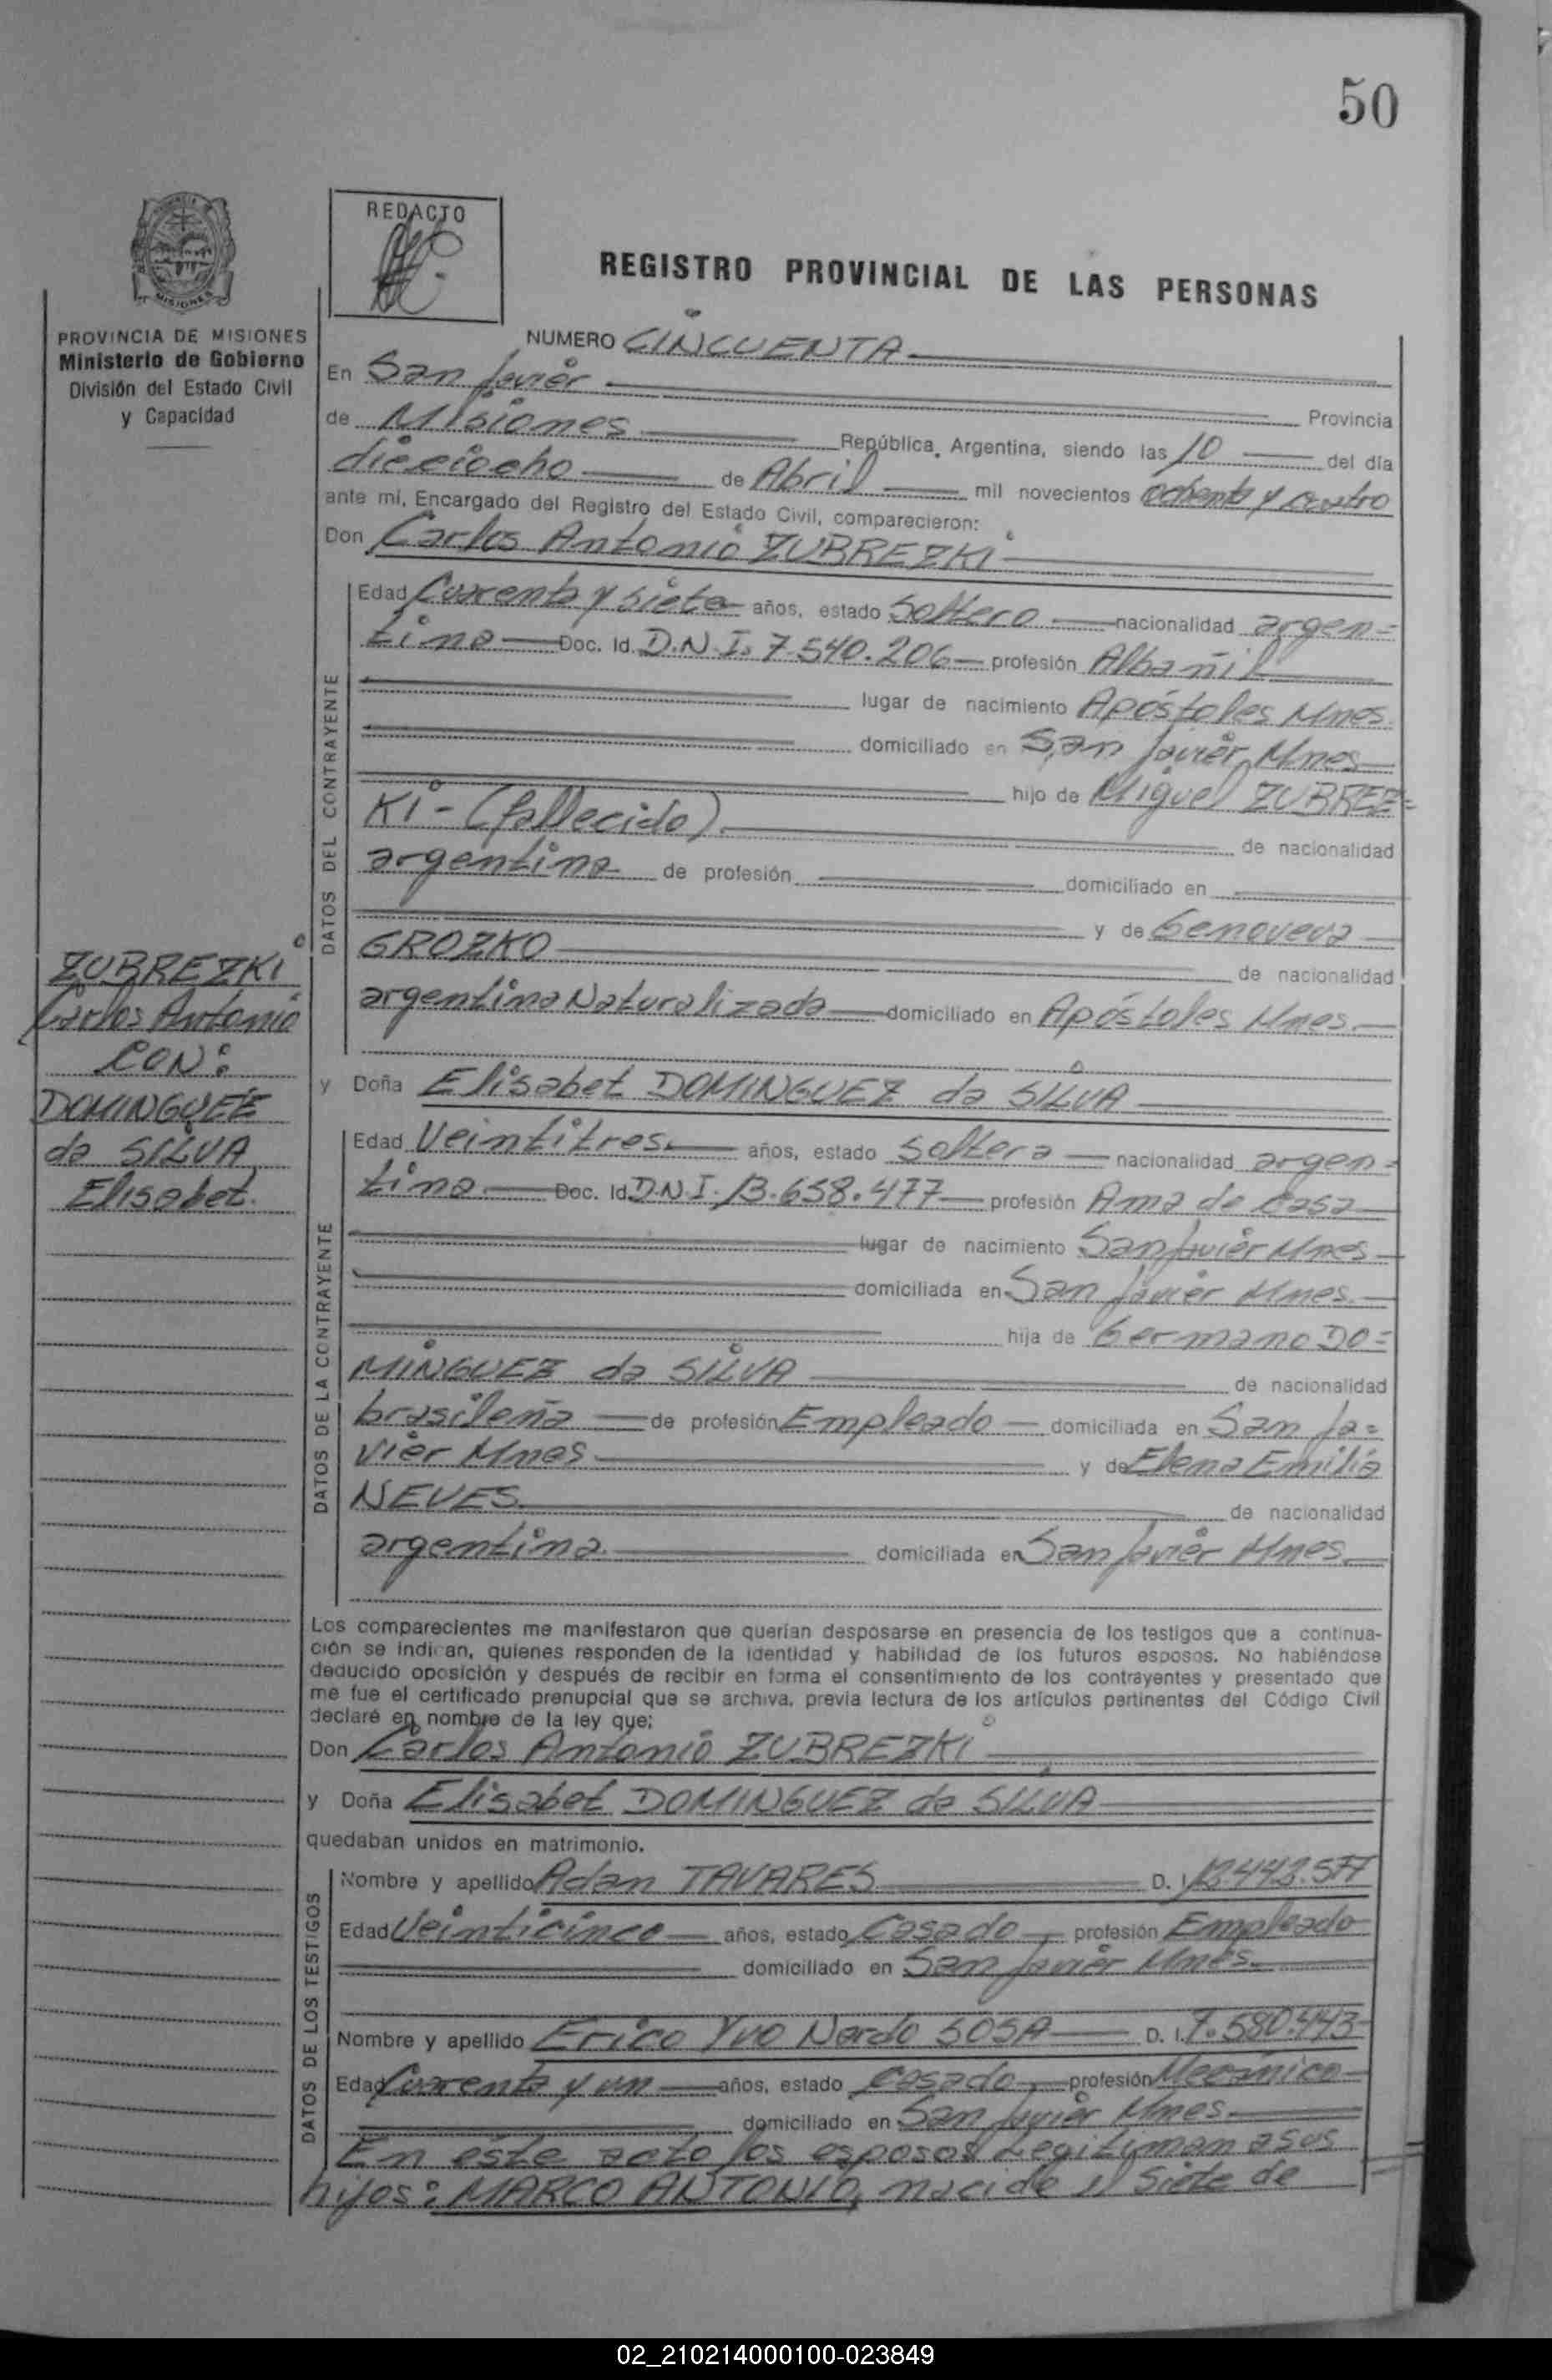 50
REDACTO
REGISTRO PROVINCIAL DE LAS PERSONAS
MISIONES
PROVINCIA DE MISIONES
Ministerio de Gobierno
División del Estado Civil
y Capacidad
NUMERO CINCUENTA
En San Javier
Provincia
de Misiones República Argentina, siendo las 10 del día
dieciocho de Abril mil novecientos ochenta y cuatro
ante mi, Encargado del Registro del Estado Civil, comparecieron:
Don Carlos Antonio ZUBREZKI
DATOS DEL CONTRAYENTE
Edad Cuarenta y siete años, estado Soltero nacionalidad argen=
tina Doc. Id. D.N.I. 7.540.206 profesión Albañil
lugar de nacimiento Apóstoles Mnes.
domiciliado en San Javier Mnes
hijo de Miguel ZUBREZ=
KI - (fallecido) de nacionalidad
argentina de profesión domiciliado en
y de Genoveva
GROZKO de nacionalidad
argentina Naturalizada domiciliado en Apóstoles Mnes.
ZUBREZKI
Carlos Antonio
CON:
DOMINGUEZ
da SILVA
Elisabet.
y Doña Elisabet DOMINGUEZ da SILVA
DATOS DE LA CONTRAYENTE
Edad Veintitres años, estado Soltera nacionalidad argen=
tina Doc. Id D.N.I. 13.658.477 profesión Ama de casa
lugar de nacimiento San Javier Mnes
domiciliada en San Javier Mnes.
hija de Germano DO=
MINGUEZ da SILVA de nacionalidad
brasileña de profesión Empleado domiciliada en San Ja=
vier Mnes y de Elena Emilia
NEVES de nacionalidad
argentina domiciliada en San Javier Mnes
Los comparecientes me manifestaron que querían desposarse en presencia de los testigos que a continua-
ción se indican, quienes responden de la identidad y habilidad de los futuros esposos. No habiéndose
deducido oposición y después de recibir en forma el consentimiento de los contrayentes y presentado que
me fue el certificado prenupcial que se archiva, previa lectura de los artículos pertinentes del Código Civil
declaré en nombre de la ley que:
Don Carlos Antonio ZUBREZKI
y Doña Elisabet DOMINGUEZ da SILVA
quedaban unidos en matrimonio.
DATOS DE LOS TESTIGOS
Nombre y apellido Adan TAVARES D. I.
Edad Veinticinco años, estado Casado profesión Empleado
domiciliado en San Javier Mnes.
Nombre y apellido Erico Yvo Nardo SOSA D. I. 7.580.443
Edad Cuarenta y un años, estado Casado profesión Mecánico
domiciliado en San Javier Mnes.
En este acto los esposos Legitiman a sus
hijos: MARCO ANTONIO, nacido el siete de
02_210214000100-023849